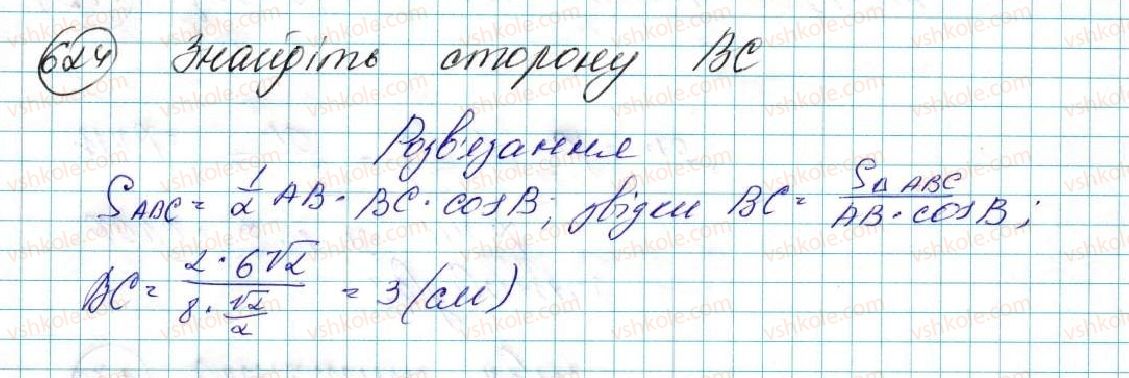 624 Знайдіть сторону BC
Розв'язання
S ABC = 1/2 AB · BC · cos B; звідки BC = S△ ABC / AB · cos B;
BC = 2 · 6√2 / 8 · √2/2 = 3 (см)